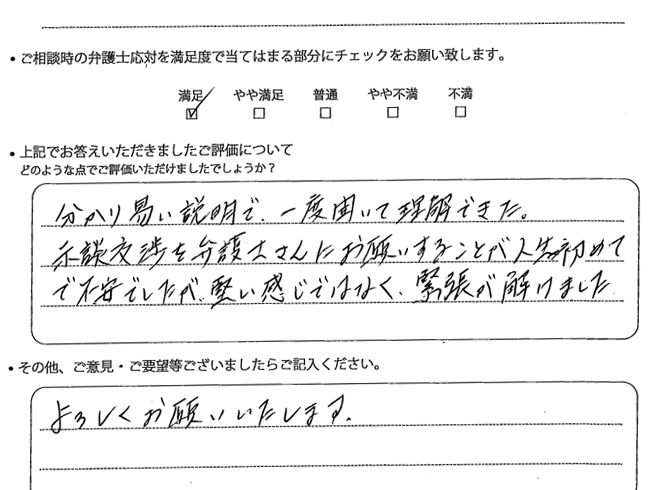 • ご相談時の弁護士応対を満足度で当てはまる部分にチェックをお願い致します。
満足 やや満足 普通 やや不満 不満
☑ □ □ □ □
• 上記でお答えいただきましたご評価について
どのような点でご評価いただけましたでしょうか?
分かり易い説明で、一度聞いて理解できた。
示談交渉を弁護士さんにお願いすることが人生初めて
で不安でしたが、堅い感じではなく、緊張が解けました
• その他、ご意見・ご要望等ございましたらご記入ください。
よろしくお願いいたします。